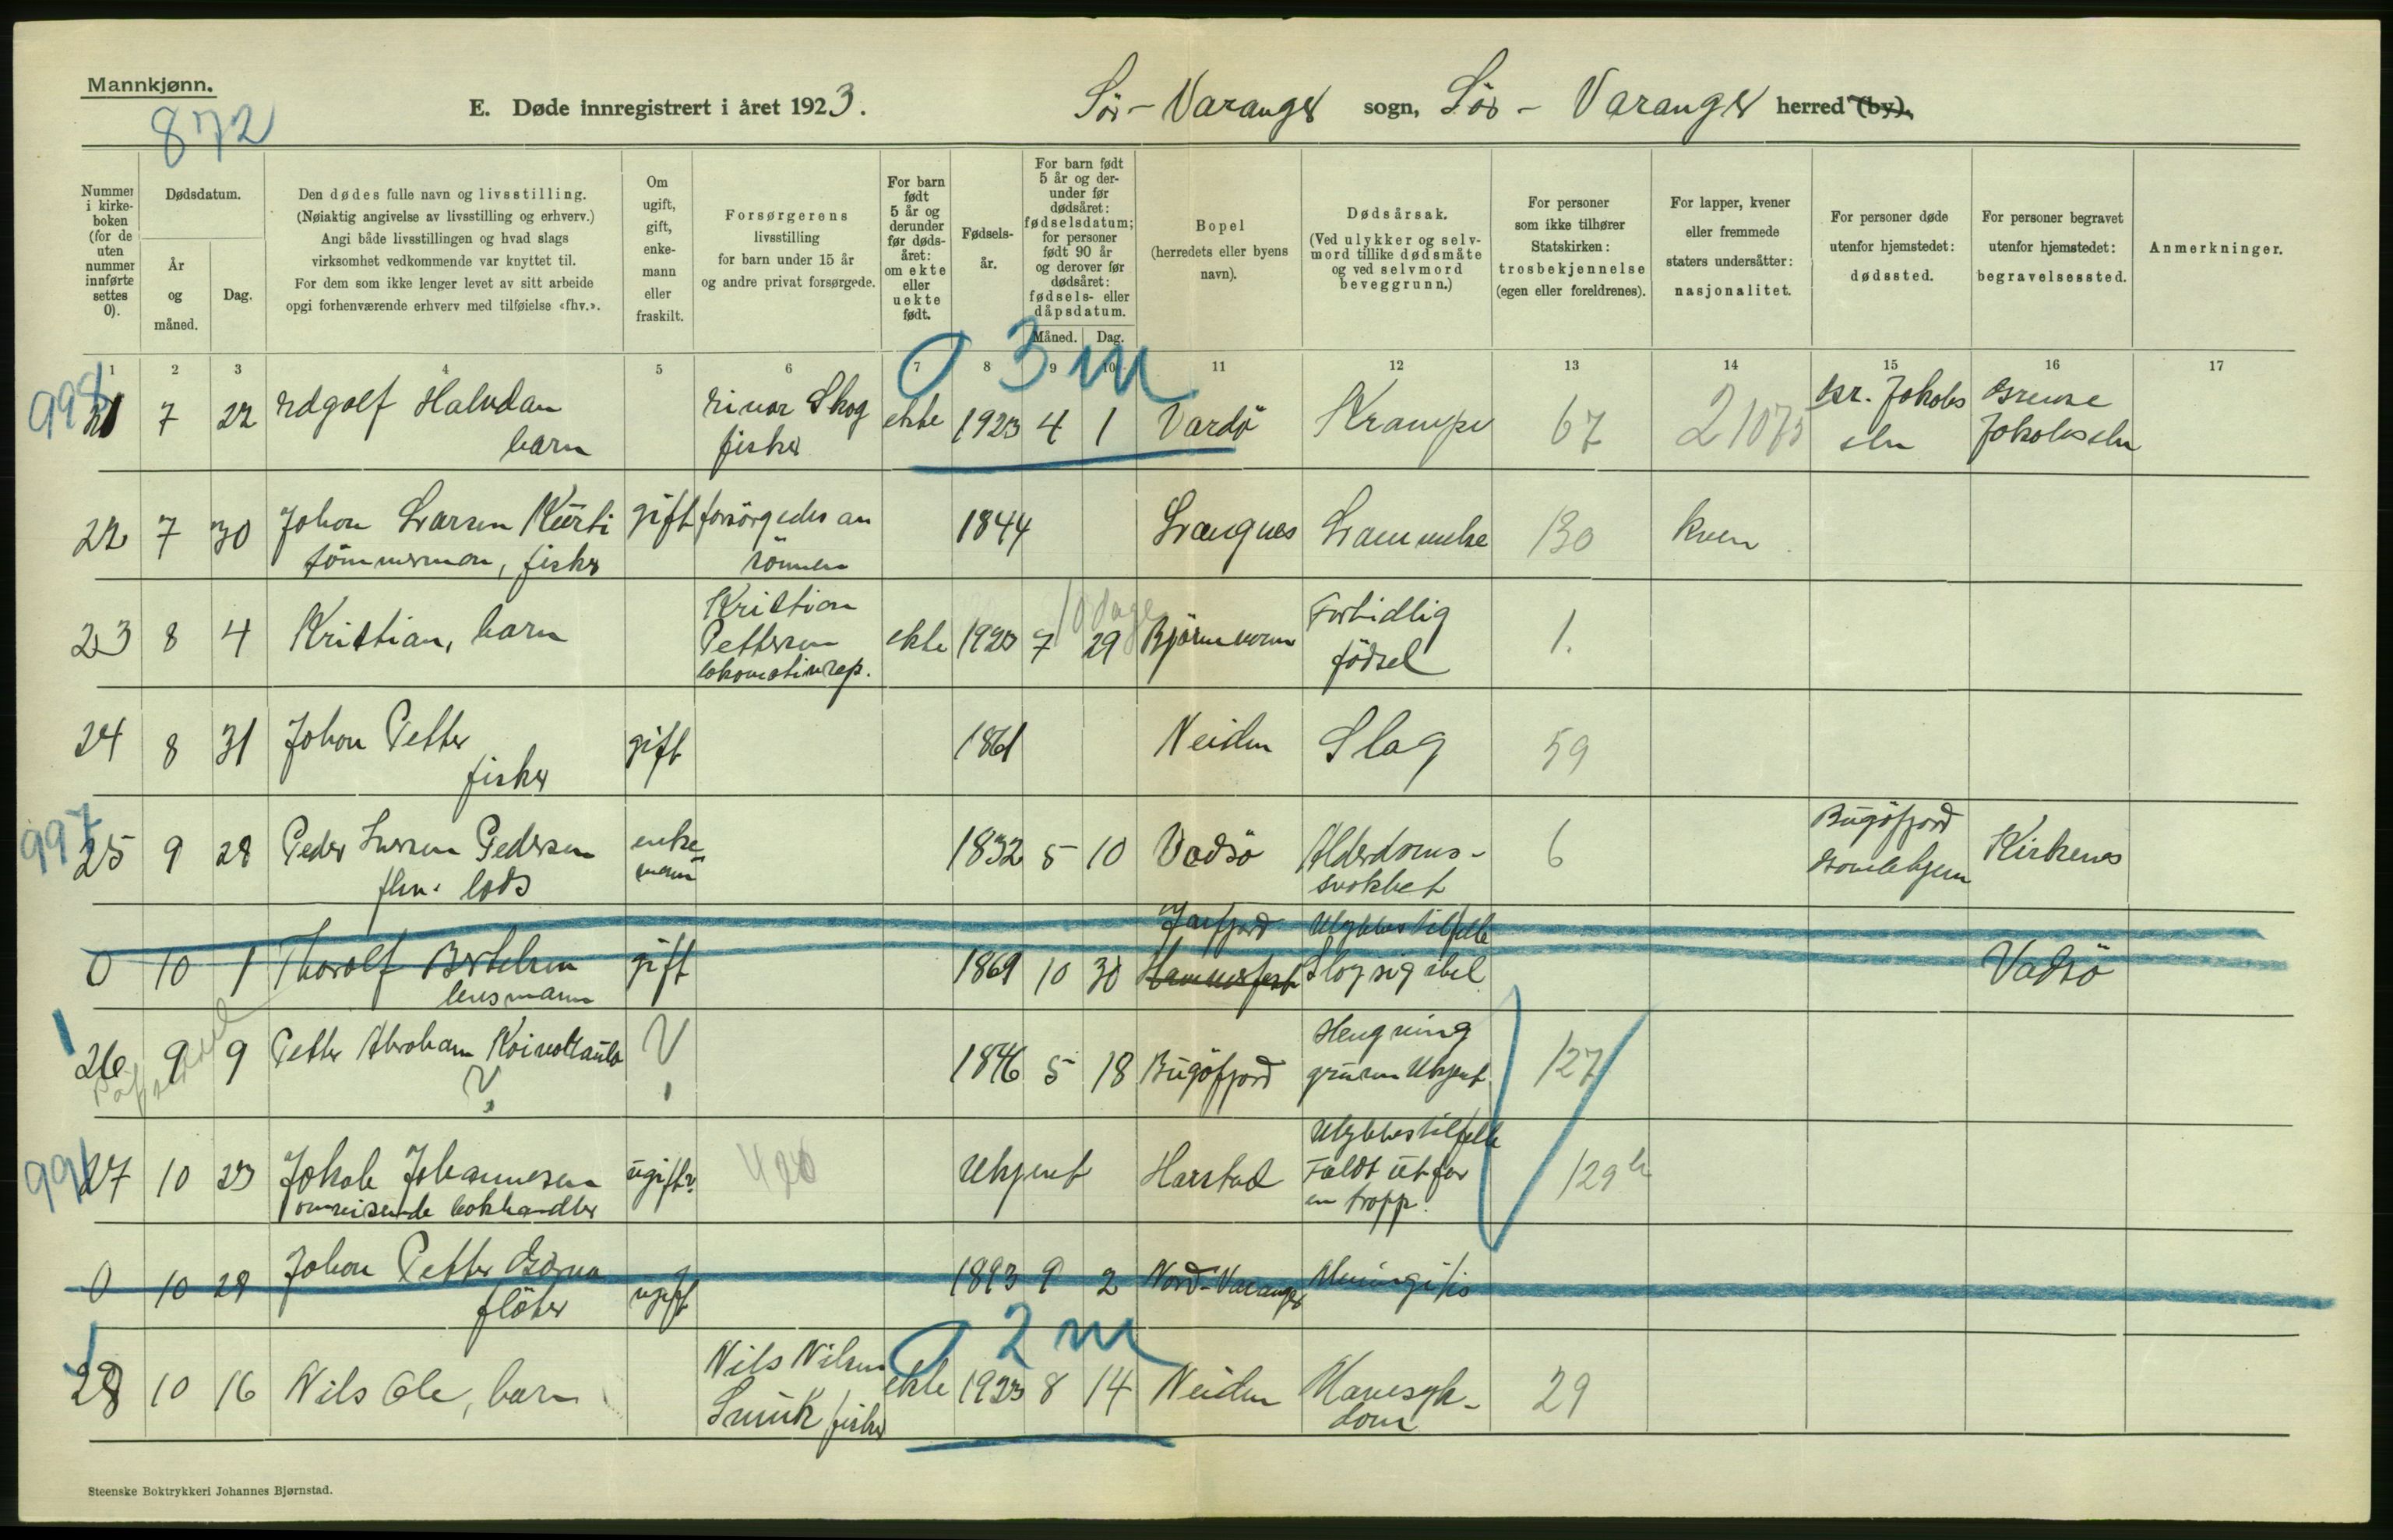 Mannkjønn.
872
E. Døde innregistrert i året 1923.
Sör-Varanger sogn, Sör-Varanger herred (by).
Nummer i kirkeboken (for de uten nummer innførte settes 0).
Dødsdatum.
År og måned.
Dag.
Den dødes fulle navn og livsstilling.
(Nøiaktig angivelse av livsstilling og erhverv.)
Angi både livsstillingen og hvad slags
virksomhet vedkommende var knyttet til.
For dem som ikke lenger levet av sitt arbeide
opgi forhenværende erhverv med tilføielse «fhv.».
Om ugift, gift, enkemann eller fraskilt.
Forsørgerens
livsstilling
for barn under 15 år
og andre privat forsørgede.
For barn født 5 år og derunder før dødsåret: om ekte eller uekte født.
Fødselsår.
For barn født 5 år og derunder før dødsåret: fødselsdatum; for personer født 90 år og derover før dødsåret: fødsels- eller dåpsdatum.
Måned. Dag.
Bopel
(herredets eller byens
navn).
Dødsårsak.
(Ved ulykker og selvmord tillike dødsmåte og ved selvmord beveggrunn.)
For personer
som ikke tilhører
Statskirken:
trosbekjennelse
(egen eller foreldrenes).
For lapper, kvener
eller fremmede
staters undersåtter:
nasjonalitet.
For personer døde
utenfor hjemstedet:
dødssted.
For personer begravet
utenfor hjemstedet:
begravelsessted.
Anmerkninger.
1 2 3 4 5 6 7 8 9 10 11 12 13 14 15 16 17
0 3 m
998
21 7 22 Edgolf Halvdan Einar Skog ekte 1923 4 1 Vardö Krampe 67 21075 Gr. Jakobs Grense
barn fisker elv Jakobselv
22 7 30 Johan Larsen Kurti gift forsörgedes av 1844 Langnes Lammelse 130 kven
tömmerman, fisker sönnen
10 dage
23 8 4 Kristian, barn Kristian Pettersen lokomotivrep. ekte 1923 7 29 Björnevann Fortidlig födsel 1.
24 8 31 Johan Petter gift 1861 Neiden Slag 59
fisker
997
25 9 28 Peder Iversen Pedersen enkemann 1832 5 10 Vadsö Alderdomssvakhet 6 Bugöfjord Gamlehjem Kirkenes
fhv. lods
0 10 1 Thorolf Bertelsen gift 1869 10 30 Jarfjord Hammerfest Ulykkestilfelle Slog sig ihel Vadsö
lensmann
26 9 9 Petter Abraham ? 1846 5 18 Bugöfjord Hengning grunnen Ukjent 127
?
991
27 10 23 Jakob Johannesen ugift? 420 Ukjent Harstad Ulykkestilfelle Faldt utfor en trapp. 129 b
omreisende bokhandler
0 10 28 Johan Petter ugift 1893 9 2 Nord-Varanger Meningitis
flöter
0 2 m
28 10 16 Nils Ole, barn Nils Nilsen ekte 1923 8 14 Neiden Mavesykdom 29
fisker
Steenske Boktrykkeri Johannes Bjørnstad.